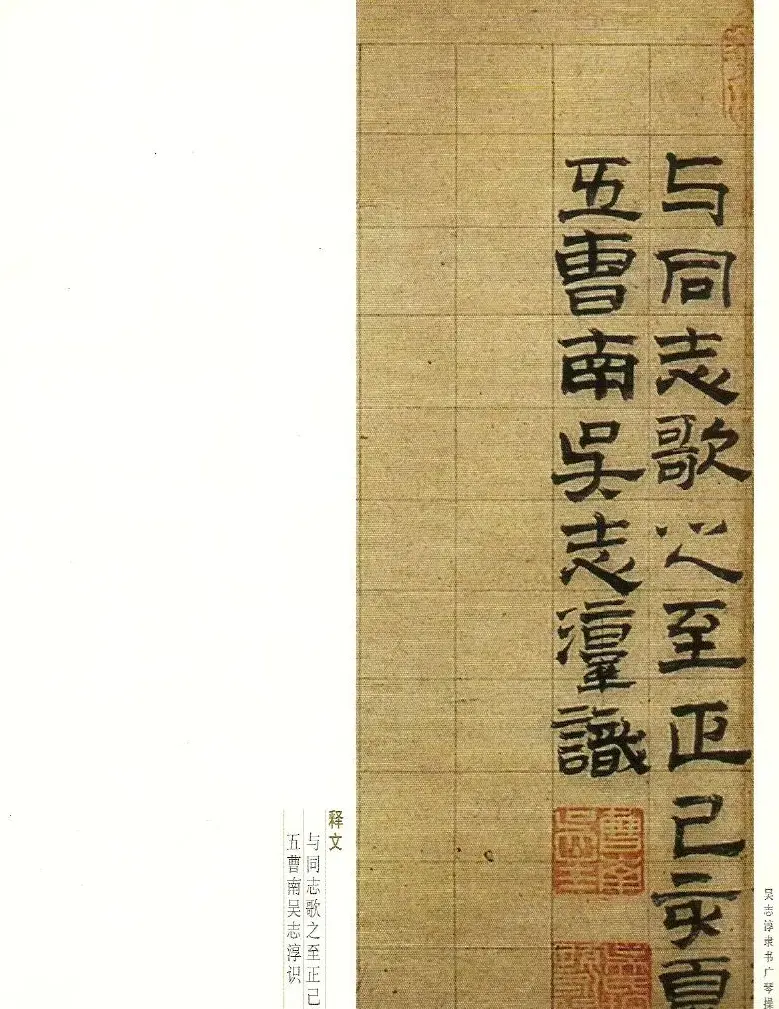 与同志歌之至正己亥夏
五曹南吴志淳識
释文
与同志歌之至正己
五曹南吴志淳识
吴志淳隶书广琴操